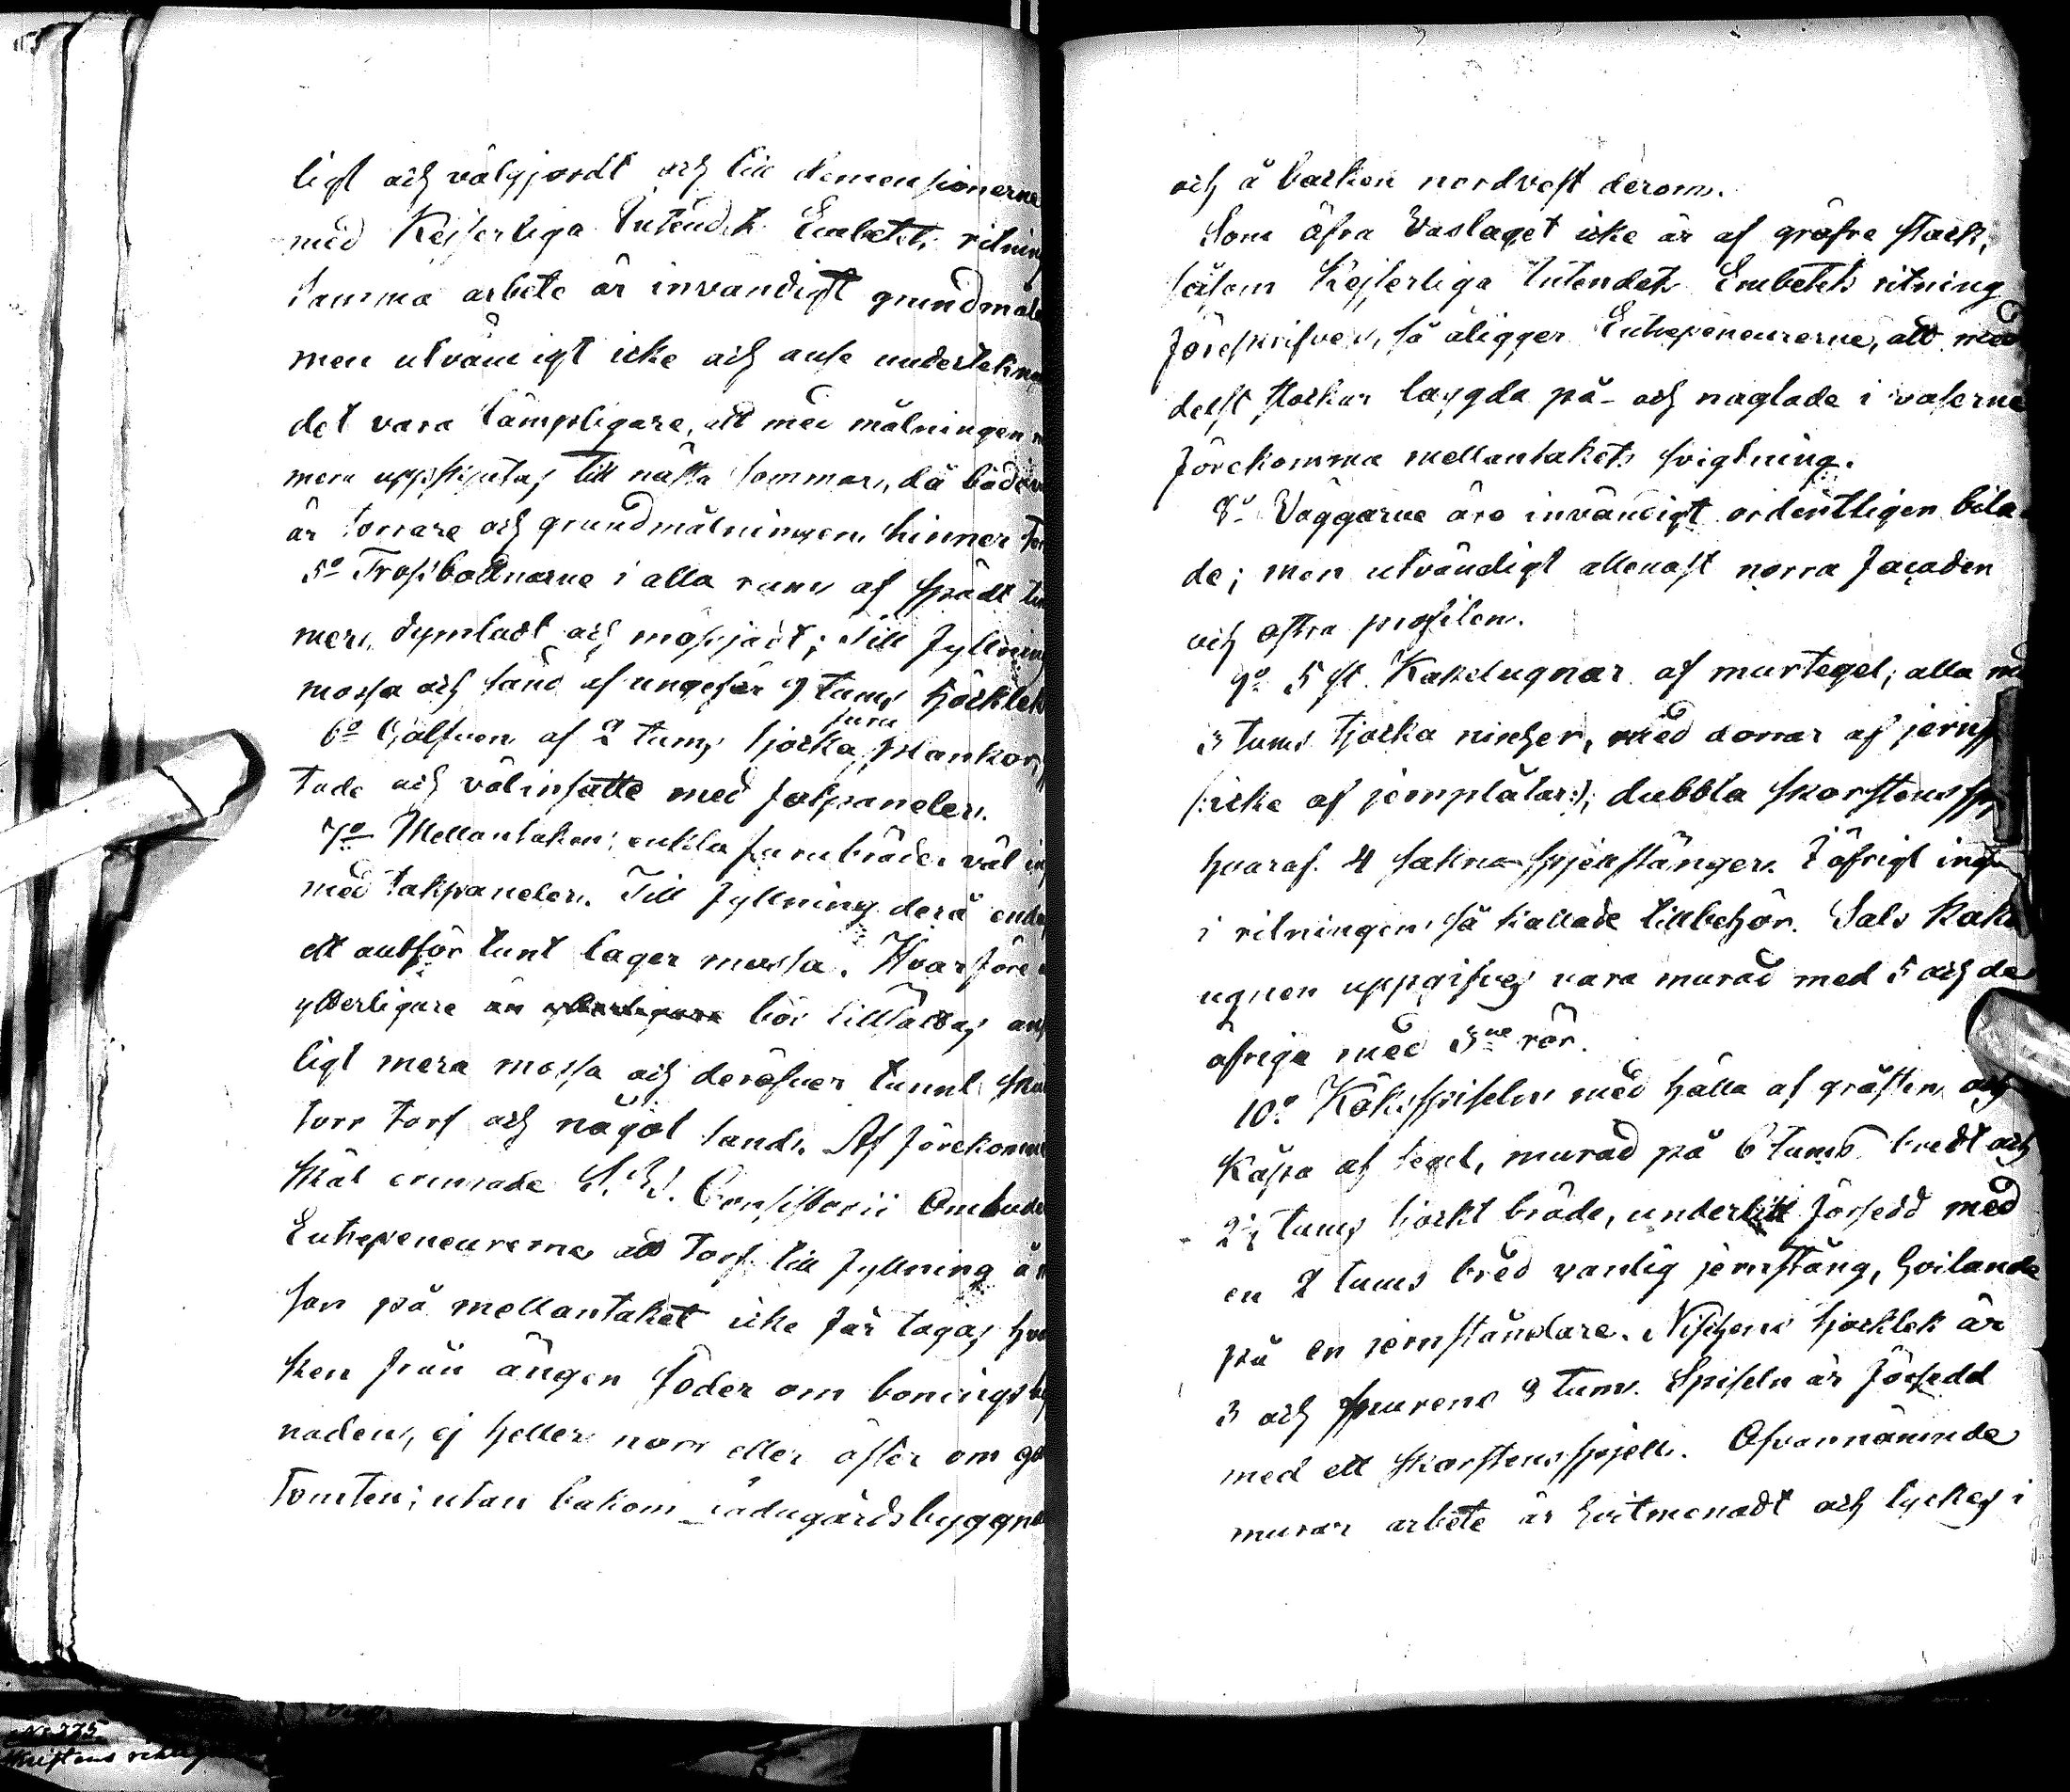 ligt och välgjordt och till demensionerne
med Kejserliga Intend:ts Embetets ritning
Samma arbete är invändigt grundmåla
men utvändigt icke och anse undertekna
det vara lämpligare, att med målningen
mera uppskjutas till nästa sommar, då både
är torrare och grundmålningen hinner tor
5o Trossbottnarne i alla rum af spädt tim
mer, dymladt och mossjadt; till fyllning
mossa och sand af ungefär 9 tums tjocklek
6o Golfven af 2 tums tjocka furu plankor,
tade och välinsatte med fotpaneler.
7o Mellantaken: enkla furubräder väl in
med takpaneler. Till fyllning derå enda
ett allt för tunt lager mossa. Hvarföre
ytterligare än ytterligare bör tillsättas an
ligt mera mossa och deröfver tunnt
torr torf och något sand. Af förekomne
skäl erinrade S. T. Consistorii Ombuds
Entrepeneurerne att torf till fyllning
san på mellantaket icke får tagas hvar
ken från ängen söder om boningsby
naden, ej heller norr eller öster om går
tomten; utan bakom ladugårdsbyggna
och å backen nordvest derom.
Som öfra Vaslaget icke är af gröfre stock,
såsom Kejserliga Intendets Embetets ritning
föreskrifver, så åligger Entrepeneurerne, att med
delst stockar laggda på- och naglade i vaserne
förekomma mellantakets svigtning.
8o Väggarne äro invändigt ordentligen bila
de; men utvändigt allenast norra façaden
och östra profilen.
9o 5 st. Kakelugnar af murtegel; alla med
3 tums tjocka nischer, med dörrar af jern
(:icke af jernplåtar:); dubbla skorstens
hvaraf 4 sakna spjellstänger. I öfrigt inga
i ritningen så kallade tillbehör. Sals Kakel
ugnen uppgifves vara murad med 5 och de
öfriga med 3ne rör.
10o Köksspiseln med hälla af gråsten och
Kåpa af tegel, murad på 6 tums bredt och
2½ tums tjockt bräde, undertill försedd med
en 2 tums bred vanlig jernstång, hvilande
på en jernständare. Nischens tjocklek är
3 och murens 9 tum. Spiseln är försedd
med ett skorstensspjell. Ofvannämnde
murar arbete är hvitmenadt och lyckes i
No 275.